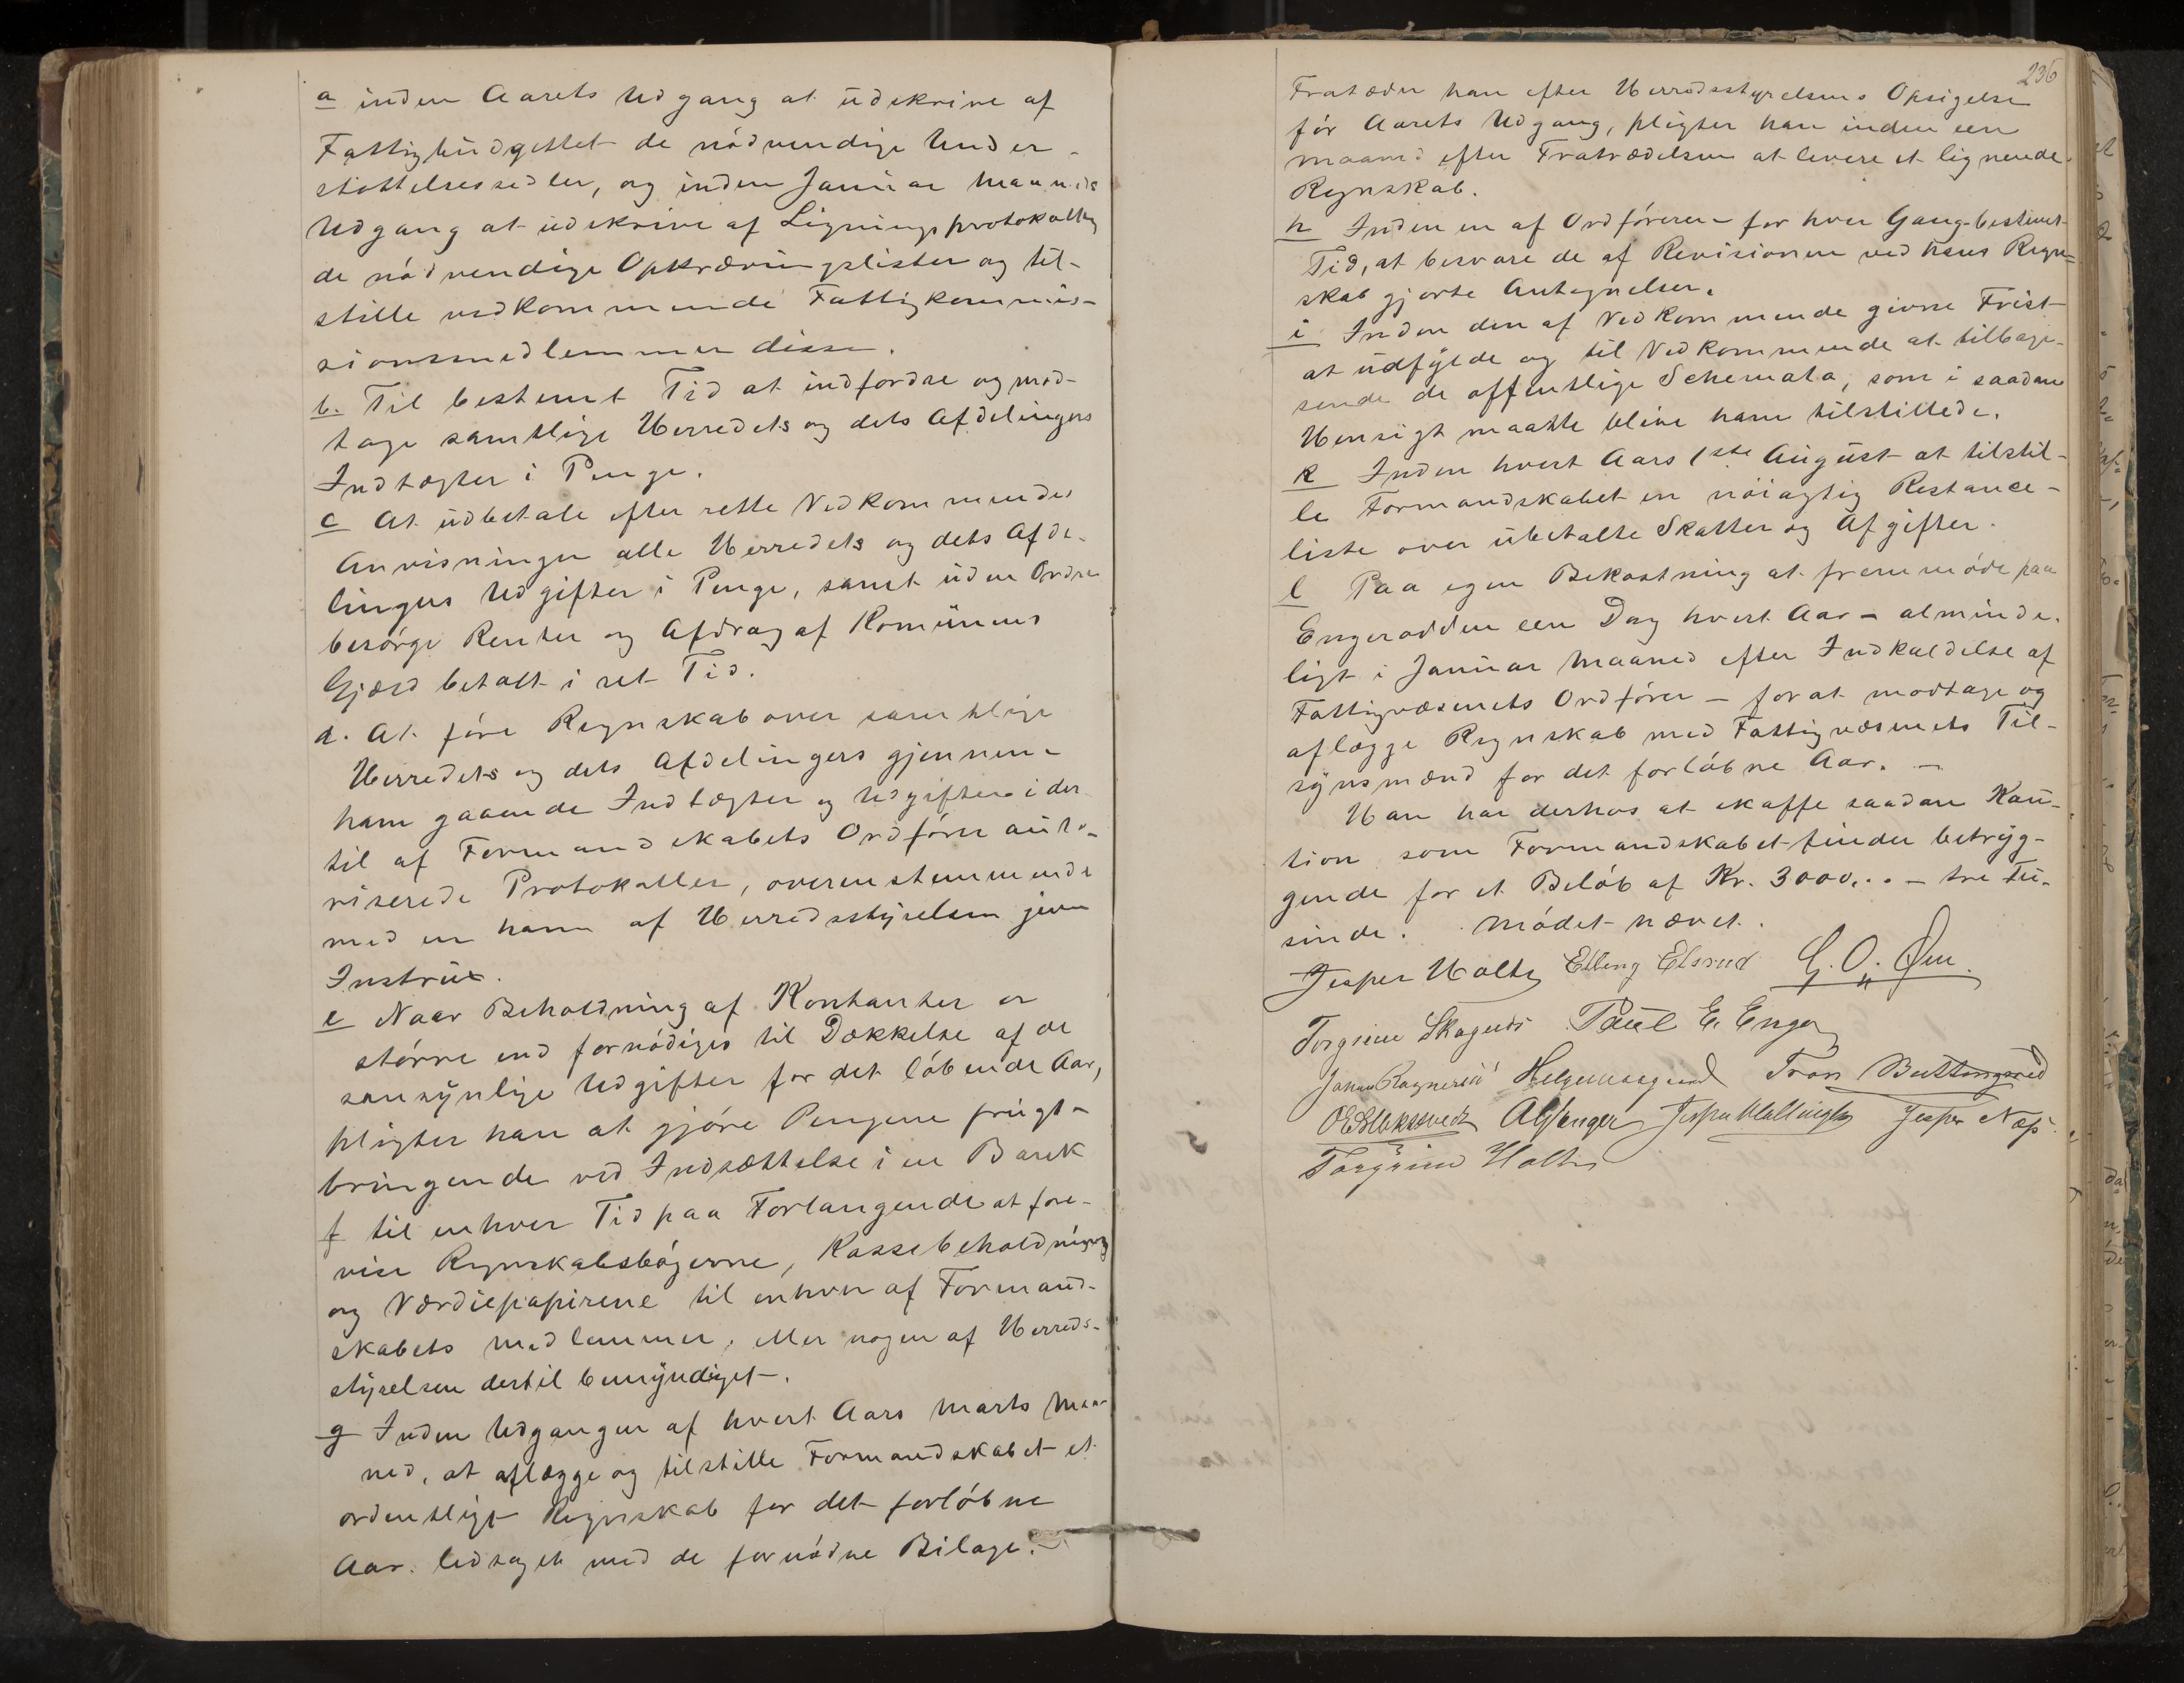 a inden Aarets Udgang at udskrive af
Fattigbudgettet de nödvendige Under-
stöttelsessedler, og inden Januar Maaneds
Udgang at udskrive af Ligningsprotokollen
de nödvendige Opkrævningslister og til-
stille vedkommende Fattigkommis-
sionsmedlemmer disse.
b. Til bestemt Tid at indfordre og mod-
tage samtlige Herredets og dets Afdelingers
Indtægter i Penge.
c At udbetale efter rette Vedkommendes
Anvisninger alle Herredets og dets Afde-
lingers Udgifter i Penge, samt uden Ordre
besörge Renter og Afdrag af Komunens
Gjæld betalt i ret Tid.
d. At före Regnskab over samtlige
Herredets og dets Afdelingers gjennem
ham gaaende Indtægter og Udgifter i der-
til af Formandskabets Ordförer auto-
riserede Protokoller, overenstemmende
med en ham af Herredsstyrelsen given
Instrux.
e Naar Beholdning af Kontanter er
större end fornödiges til Dækkelse af de
sansynlige Udgifter for det löbende Aar,
pligter han at gjöre Pengene frugt-
bringende ved Indsættelse i en Bank
f til enhver Tid paa Forlangende at fore-
vise Regnskabsbögerne, Kassebeholdningen
og Værdiepapirene til enhver af Formand-
skabets medlemmer, eller nogen af Herreds-
styrelsen dertil bemyndiget.
g Inden Udgangen af hvert Aars Marts Maa-
ned, at aflægge og tilstille Formandskabet et
ordentligt Regnskab for det forlöbne
Aar. ledsaget med de fornödne Bilage.
236
Fratræder han efter Herredsstyrelsens Opsigelse
för Aarets Udgang, pligter han inden een
maaned efter Fratrædelsen at levere et lignende
Regnskab.
h Inden en af Ordföreren for hver Gang bestemt
Tid, at besvare de af Revisionen ved hans Regn-
skab gjorte Antegnelser.
i Inden den af Vedkommende givne Frist
at udfylde og til Vedkommende at tilbage-
sende de offentlige Schemata, som i saadan
Hensigt maatte blive ham tilstillede.
k Inden hvert Aars 1ste August at tilstil-
le Formandskabet en nöiagtig Restance-
liste over ubetalte Skatter og Afgifter.
l Paa egen Bekostning at fremmöde paa
Engerodden een Dag hvert Aar – alminde-
ligt i Januar Maaned efter Indkaldelse af
Fattigvæsenets Ordförer – for at modtage og
aflægge Regnskab med Fattigvæsenets Til-
synsmænd for det forlöbne Aar. –
Han har derhos at skaffe saadan Kau-
tion som Formandskabet finder betryg-
gende for et Belöb af Kr. 3000,.. – tre Tu-
sinde. Mödet hævet.
Jesper Holte Elling Elsrud G. O. Øen
Torgrim Skagnæs Paul E. Enger
Johan Ragnerud Helge Tron Buttingsrud
Jesper Næs
Torgrim Holte